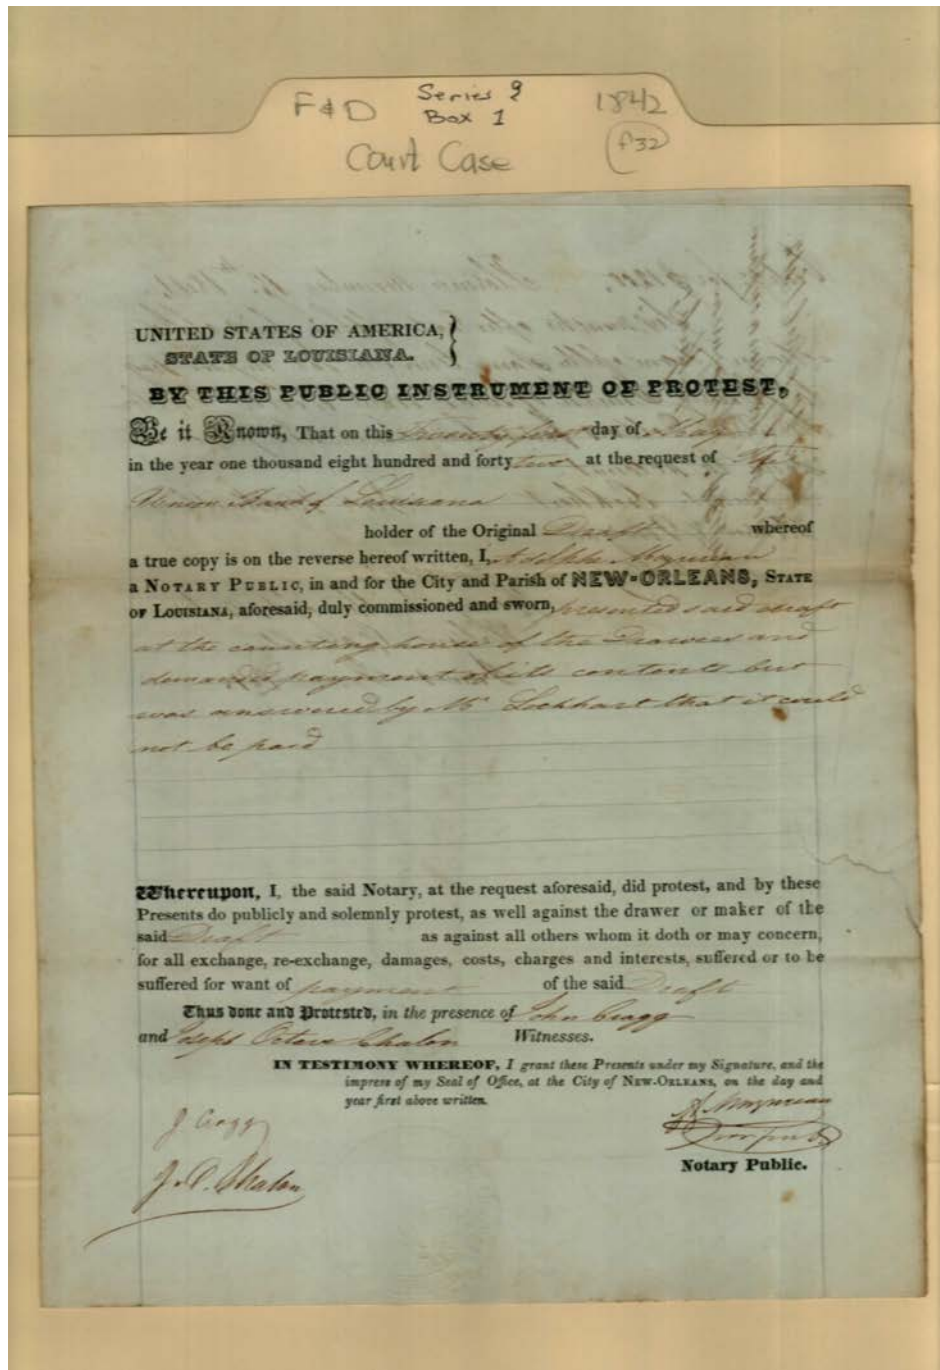 F & D Series 9 1842
Box 1 f32
Court Case
UNITED STATES OF AMERICA,
STATE OF LOUISIANA.
BY THIS PUBLIC INSTRUMENT OF PROTEST,
Be it Known, That on this Twenty day of May
in the year one thousand eight hundred and forty two at the request of The
Union Bank of Louisiana
holder of the Original Draft whereof
a true copy is on the reverse hereof written, I, Adolphe Mazureau
a NOTARY PUBLIC, in and for the City and Parish of NEW-ORLEANS, STATE
OF LOUISIANA, aforesaid, duly commissioned and sworn, presented said draft
at the counting house of the Drawees and
demanded payment of its contents but
was answered by Mr Lockhart that it could
not be paid
Whereupon, I, the said Notary, at the request aforesaid, did protest, and by these
Presents do publicly and solemnly protest, as well against the drawer or maker of the
said Draft as against all others whom it doth or may concern,
for all exchange, re-exchange, damages, costs, charges and interests, suffered or to be
suffered for want of payment of the said Draft
Thus done and Protested, in the presence of John Cragg
and Joseph Octave Chalon Witnesses.
IN TESTIMONY WHEREOF, I grant these Presents under my Signature, and the
impress of my Seal of Office, at the City of NEW-ORLEANS, on the day and
year first above written.
J Cragg A. Mazureau
J. O. Chalon
Notary Public.